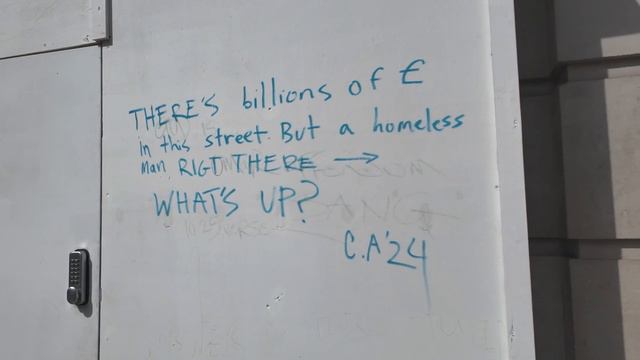 THERE'S billions of £
in this street. But a homeless
man, RIGT THERE →
WHAT'S UP?
C.A'24